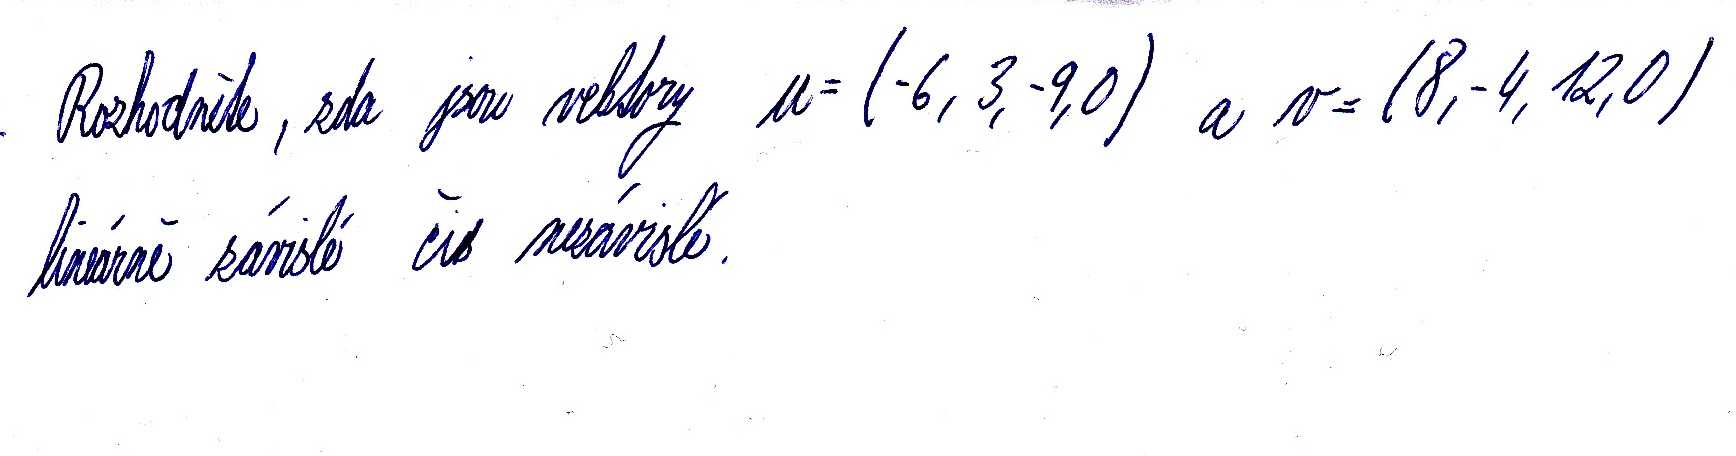 Rozhodněte, zda jsou vektory u = (-6, 3, -9, 0) a v = (8, -4, 12, 0)
lineárně závislé či nezávislé.